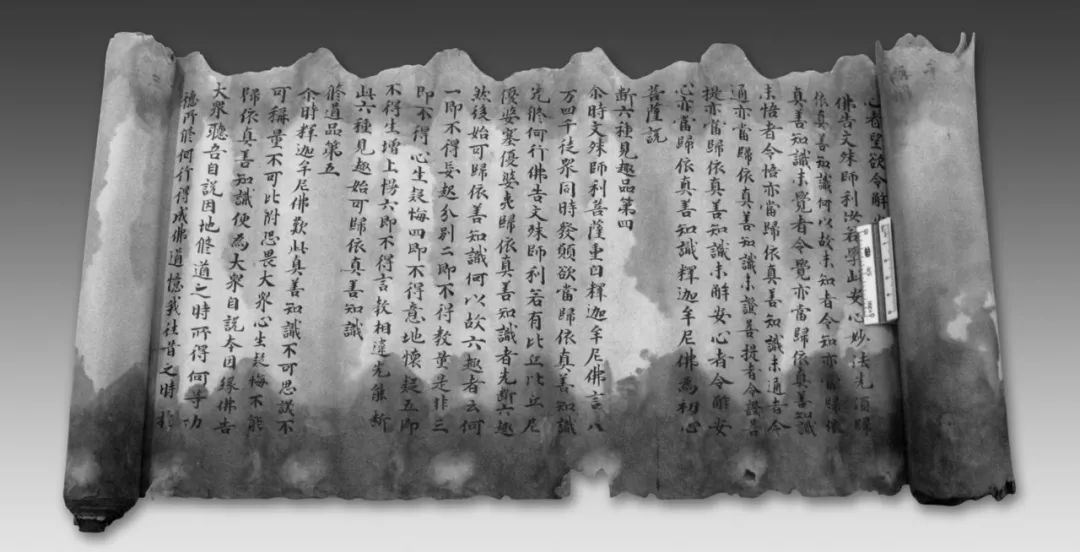 心者望欲令解
佛告文殊師利汝若學此安心妙法先須歸
依真善知識何以故未知者令知亦當歸依
真善知識未覺者令覺亦當歸依真善知識
未悟者令悟亦當歸依真善知識未通者令
通亦當歸依真善知識未證菩提者令證菩
提亦當歸依真善知識未解安心者令解安
心亦當歸依真善知識釋迦牟尼佛為初心
菩薩說
斷六種見趣品第四
尒時文殊師利菩薩重白釋迦牟尼佛言八
万四千徒衆同時發願欲當歸依真善知識
先依何行佛告文殊師利若有比丘比丘尼
優婆塞優婆夷歸依真善知識者先斷六趣
然後始可歸依善知識何以故六趣者云何
一即不得妄起分別二即不得教量是非三
即不得心生疑悔四即不得意地懷疑五即
不得生增上慢六即不得言教相違先能斷
此六種見趣始可歸依真善知識
脩道品第五
尒時釋迦牟尼佛歎此真善知識不可思議不
可稱量不可比附恐畏大衆心生疑悔不能
歸依真善知識便為大衆自說本因緣佛告
大衆聽吾自說因地脩道之時所得何等功
德所於何行得成佛道憶我往昔之時